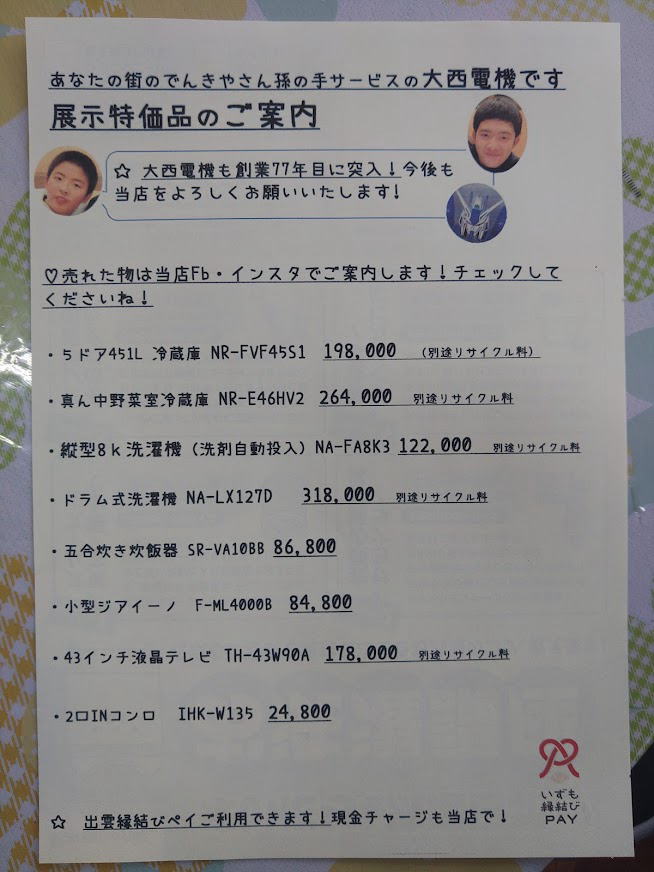 あなたの街のでんきやさん孫の手サービスの大西電機です
展示特価品のご案内
☆ 大西電機も創業77年目に突入！今後も
当店をよろしくお願いいたします！
♡売れた物は当店Fb・インスタでご案内します！チェックして
くださいね！
・５ドア451L 冷蔵庫 NR-FVF45S1 198,000 （別途リサイクル料）
・真ん中野菜室冷蔵庫 NR-E46HV2 264,000 別途リサイクル料
・縦型8ｋ洗濯機（洗剤自動投入）NA-FA8K3 122,000 別途リサイクル料
・ドラム式洗濯機 NA-LX127D 318,000 別途リサイクル料
・五合炊き炊飯器 SR-VA10BB 86,800
・小型ジアイーノ F-ML4000B 84,800
・43インチ液晶テレビ TH-43W90A 178,000 別途リサイクル料
・2口INコンロ IHK-W135 24,800
いずも
縁結び
PAY
☆ 出雲縁結びペイご利用できます！現金チャージも当店で！